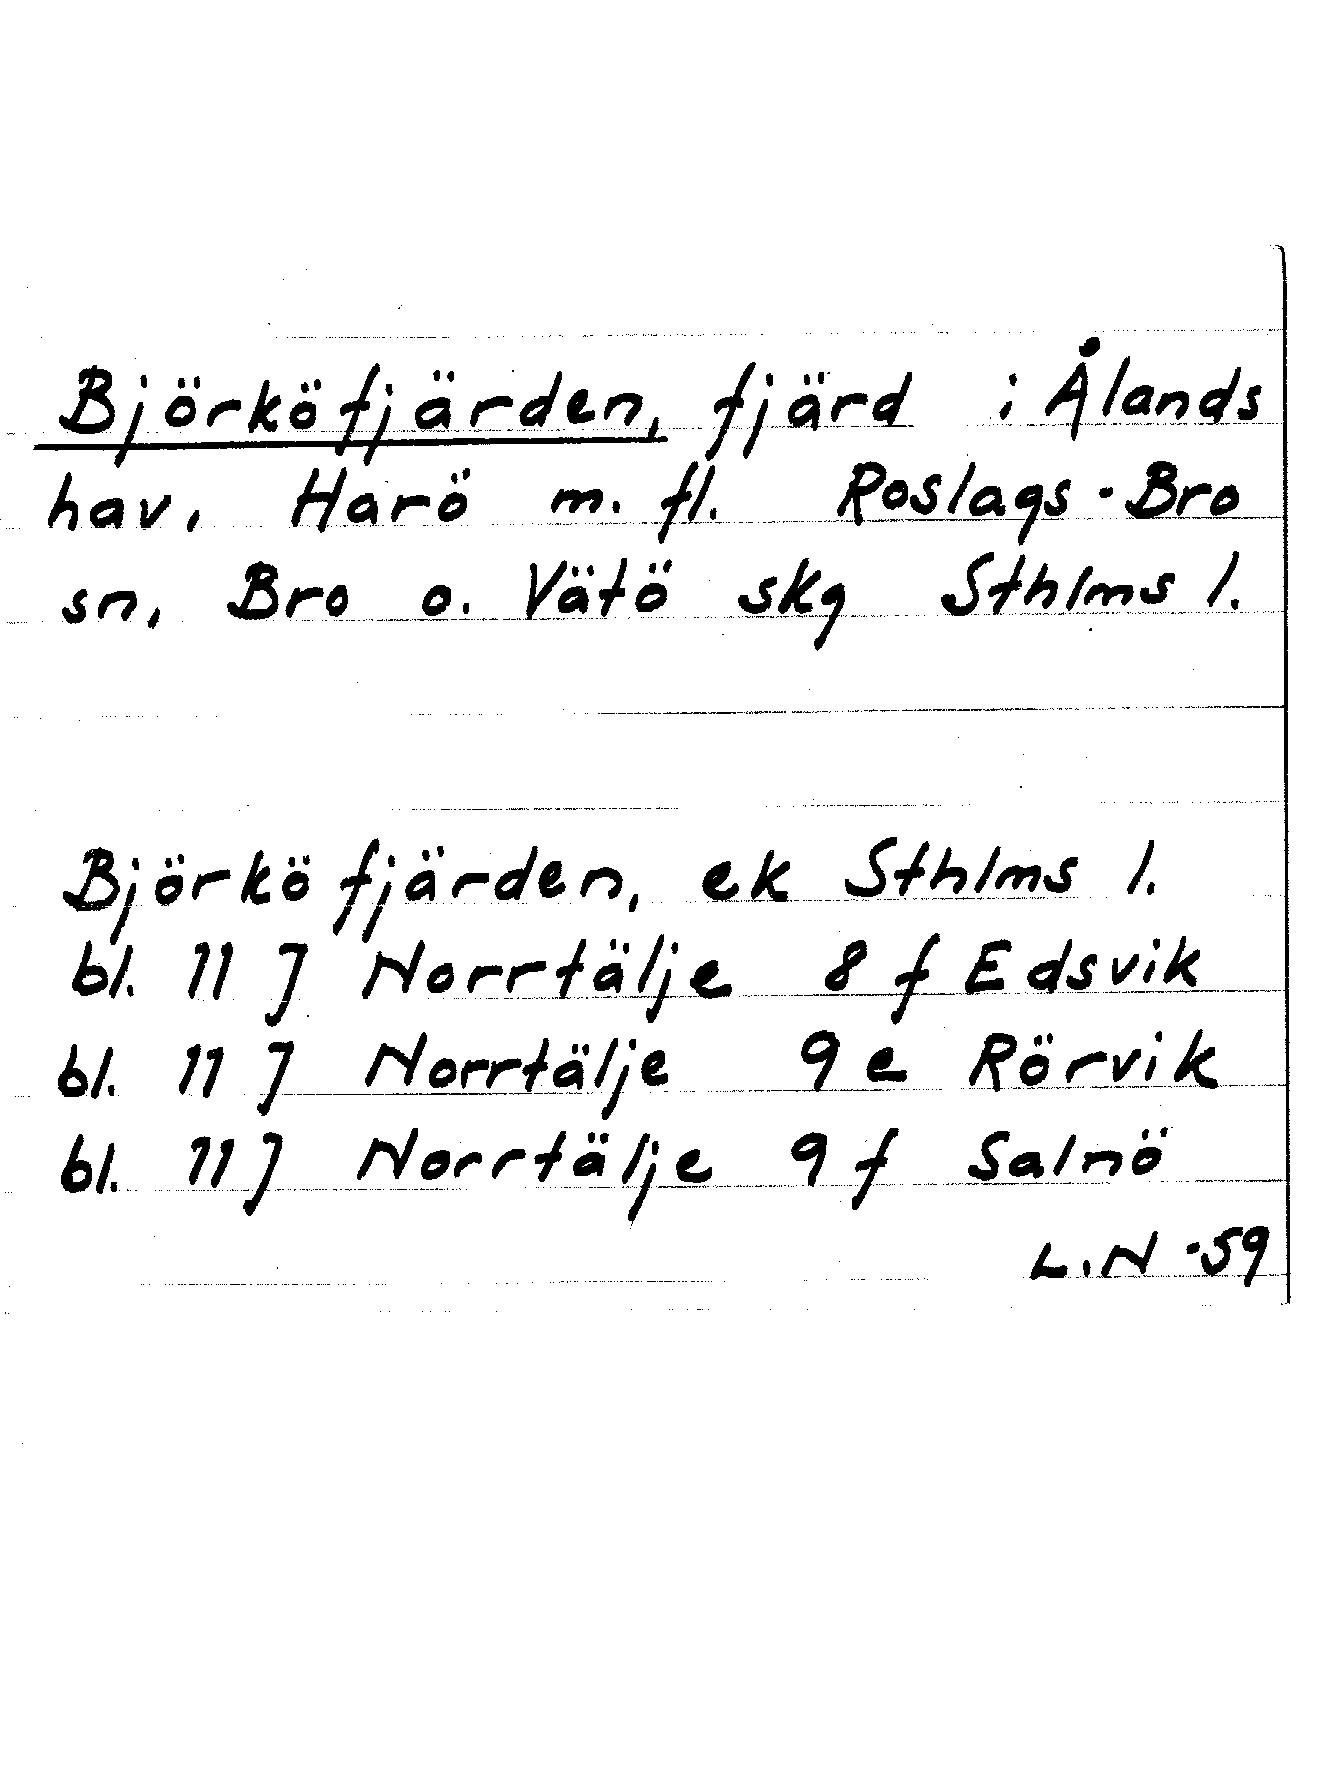 Björköfjärden, fjärd i Ålands
hav, Harö m. fl. Roslags-Bro
sn, Bro o. Vätö skg Sthlms l.
Björköfjärden, ek Sthlms l.
bl. 11 J Norrtälje 8 f Edsvik
bl. 11 J Norrtälje 9 e Rörvik
bl. 11 J Norrtälje 9 f Salnö
L.N -59